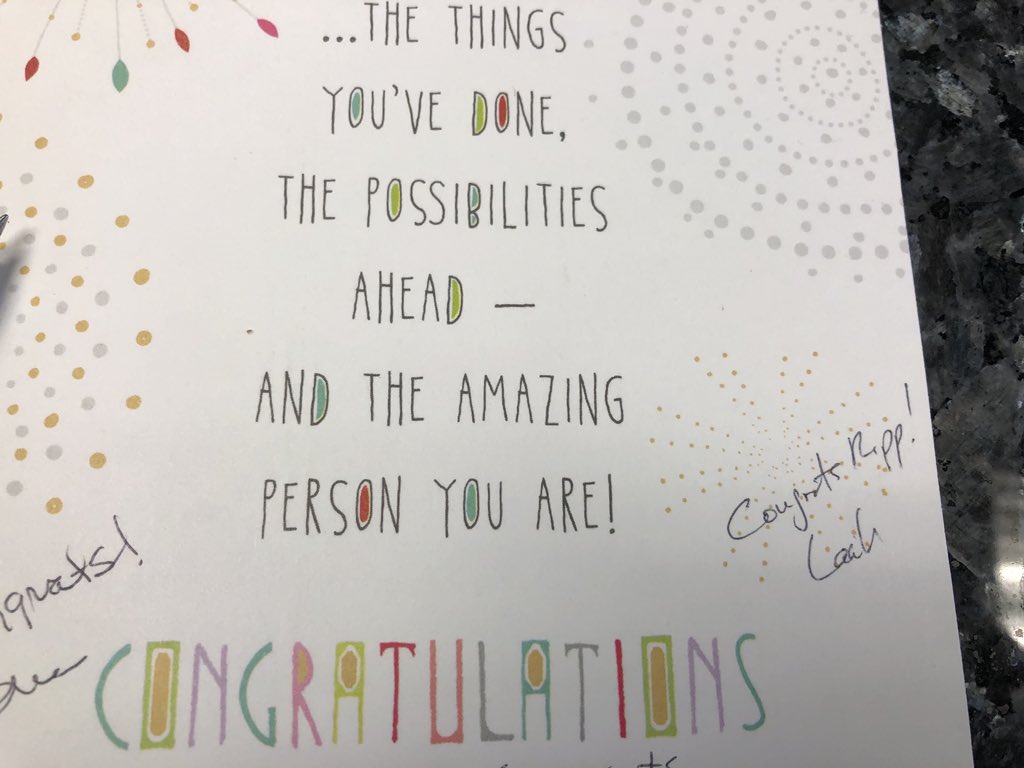 ...THE THINGS
YOU'VE DONE,
THE POSSIBILITIES
AHEAD —
AND THE AMAZING
PERSON YOU ARE!
Congrats Ripp!
Leah
ngrats!
CONGRATULATIONS